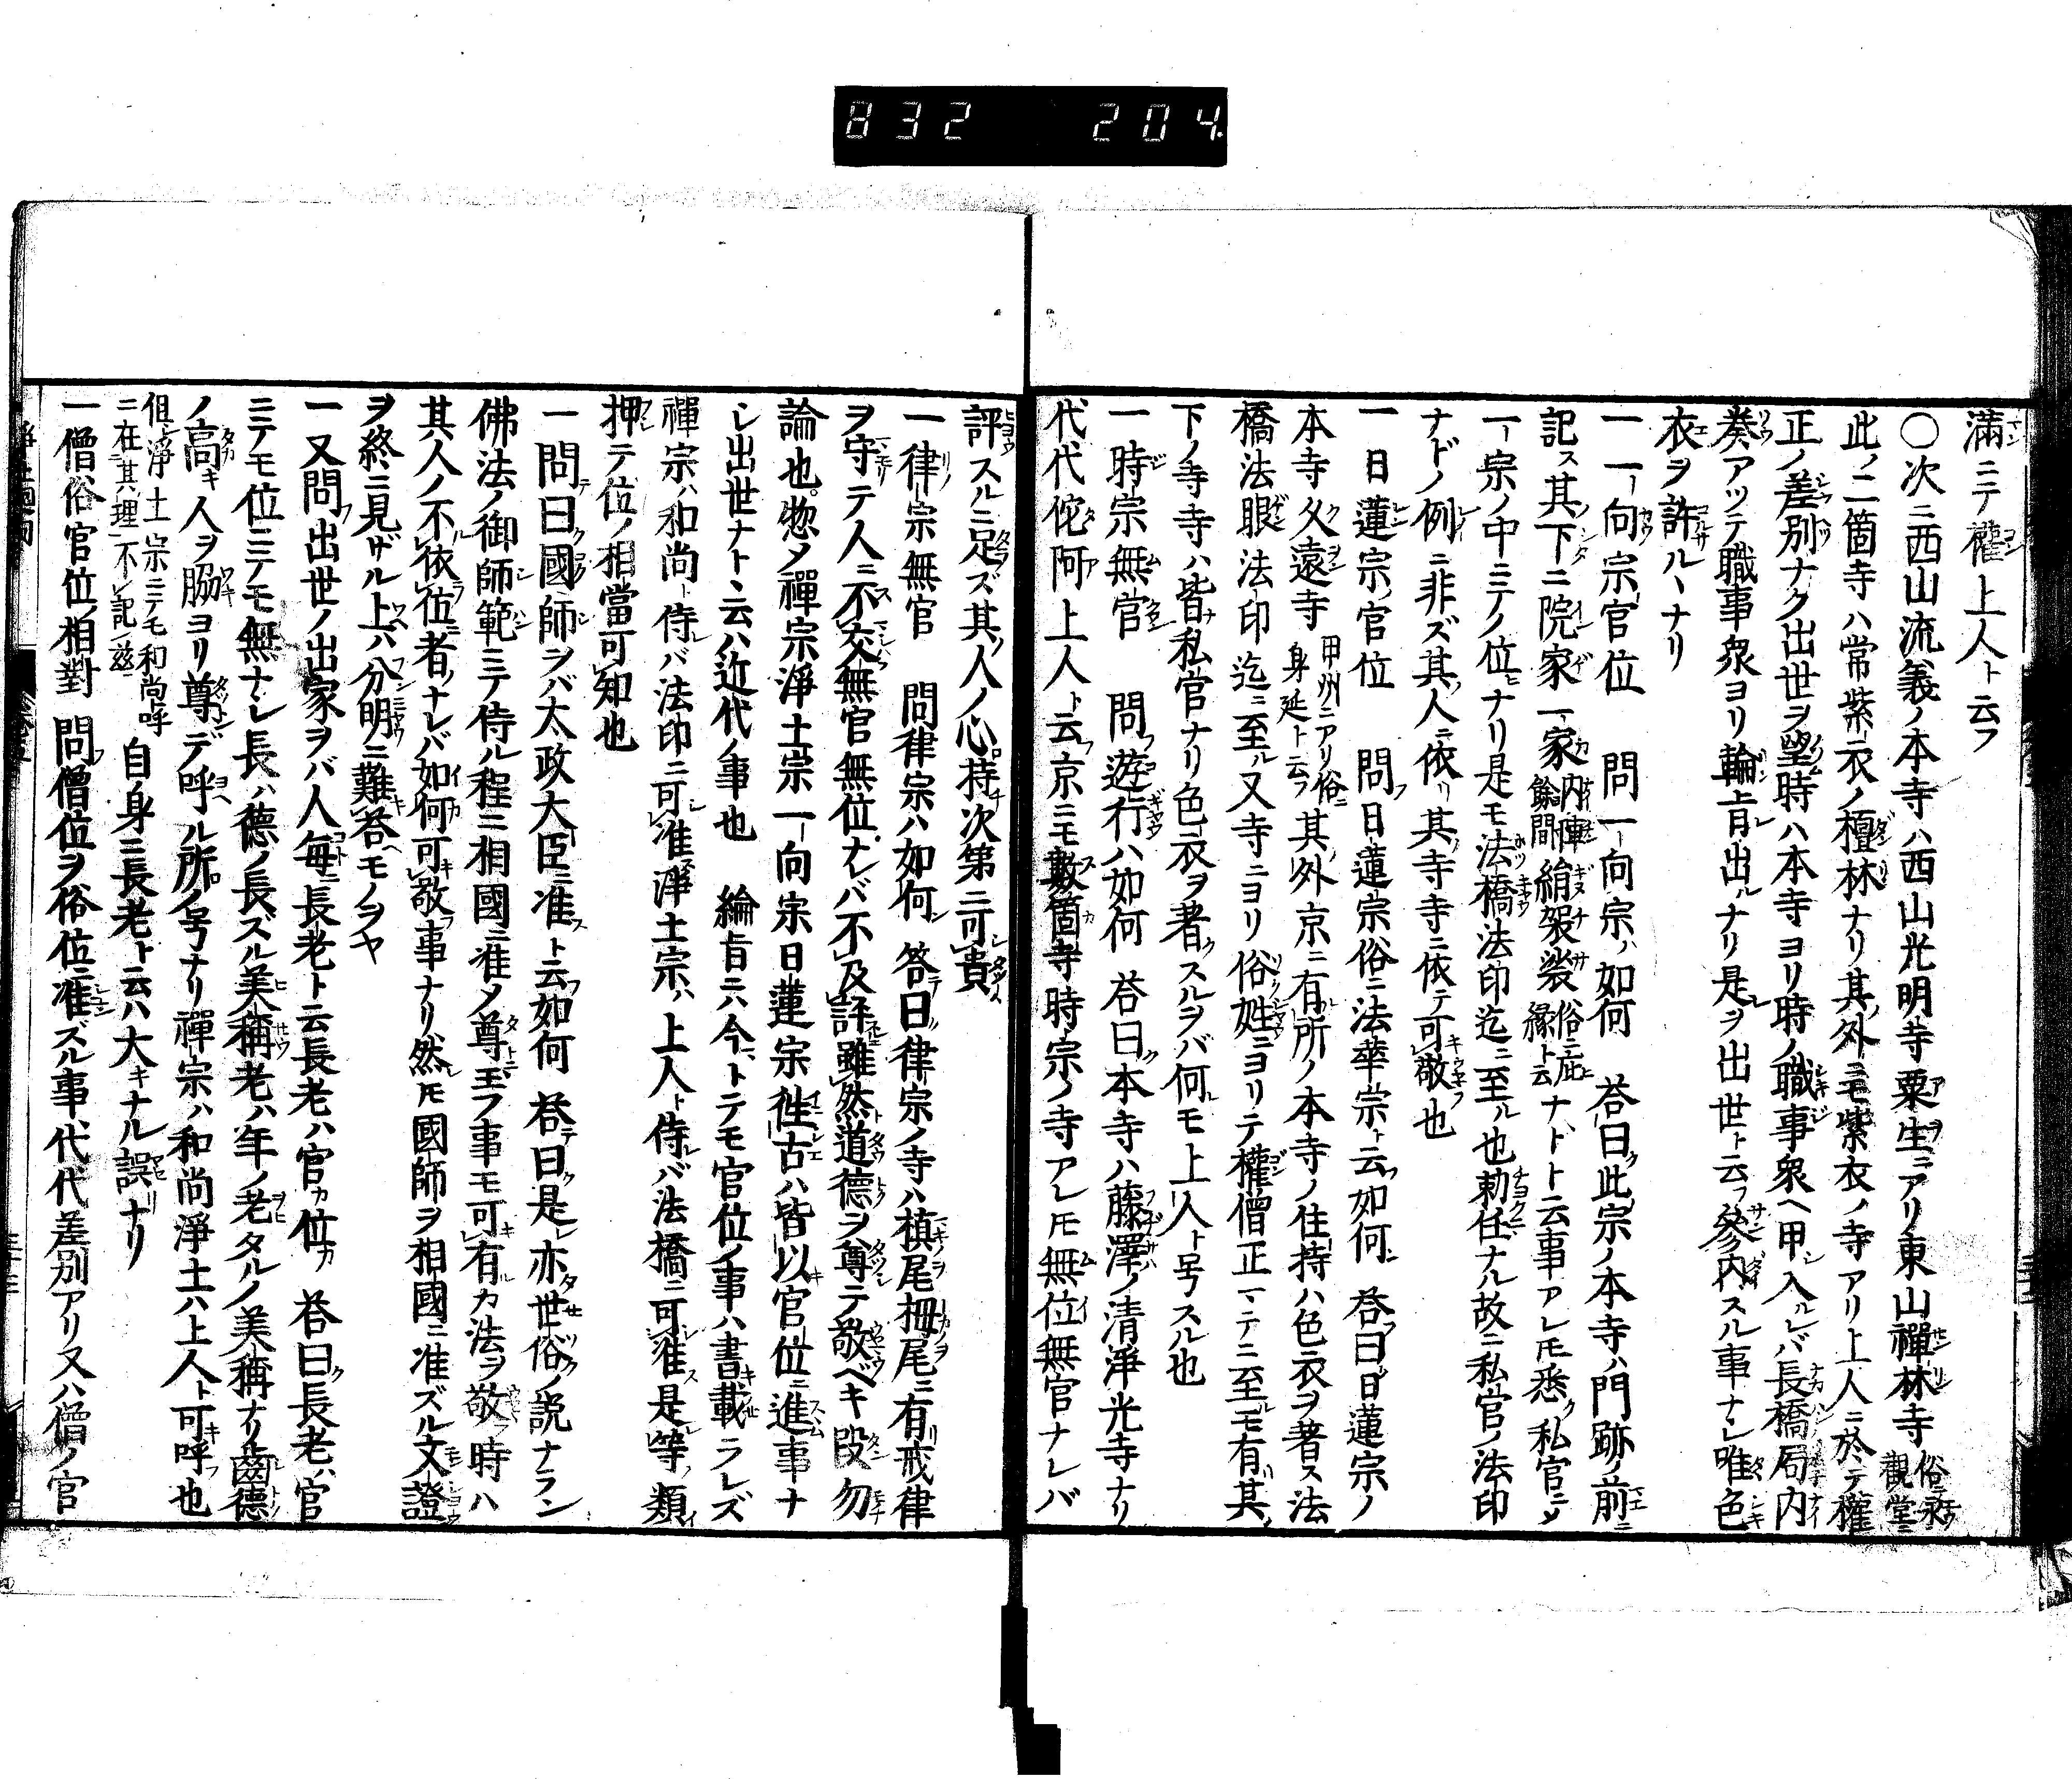 832 204
滿ニテ權上人ト云フ
〇次ニ西山流義ノ本寺ハ西山光明寺粟生ニアリ東山禪林寺俗ニ永觀堂ニ
此ノ二箇寺ハ常紫衣ノ檀林ナリ其外ニモ紫衣ノ寺アリ上人ニ於テ權
正ノ差別ナク出世ヲ望時ハ本寺ヨリ時ノ職事衆ヘ申シ入ルレバ長橋局内
奏アツテ職事衆ヨリ輪旨出ルナリ是ヲ出世ト云フ參内スル事ナシ唯色
衣ヲ許ルヽナリ
一一向宗官位 問一向宗ハ如何 答曰此宗ノ本寺ハ門跡ノ前ニ
記ス其下ニ院家一家内陣餘間絹袈裟俗ニ庇縁ト云ナドト云事アレモ悉ク私官ニメ
一宗ノ中ニテノ位ナリ是モ法橋法印迄ニ至ル也勅任ナル故ニ私官ノ法印
ナドノ例ニ非ズ其人ニ依リ其寺寺ニ依テ可敬也
一日蓮宗官位 問日蓮宗俗ニ法華宗ト云フ如何 答曰日蓮宗ノ
本寺久遠寺甲州ニアリ俗ニ身延ト云フ其外京ニ有所ノ本寺ノ住持ハ色衣ヲ著ス法
橋法眼法印迄ニ至ル又寺ニヨリ俗姓ニヨリテ權僧正マテニ至ルモ有其
下ノ寺寺ハ皆私官ナリ色衣ヲ著スルヲバ何モ上人ト号スル也
一時宗無官 問遊行ハ如何 答曰本寺ハ藤澤ノ清淨光寺ナリ
代代佗阿上人ト云京ニモ數箇寺時宗ノ寺アレモ無位無官ナレバ
評スルニ足ズ其人ノ心持次第ニ可貴
一律宗無官 問律宗ハ如何 答曰律宗ノ寺ハ槙尾栂尾ニ有戒律
ヲ守テ人ニ不交無官無位ナレバ不及評雖然道德ヲ尊テ敬ベキ段勿
論也惣メ禪宗淨土宗一向宗日蓮宗徃古ハ皆以官位ニ進事ナ
シ出世ナトヽ云ハ近代ノ事也 綸旨ニハ今ニトテモ官位ノ事ハ書載ラレズ
禪宗ハ和尚ト侍レバ法印ニ可准淨土宗ハ上人ト侍レバ法橋ニ可准是等ノ類
押テ位ノ相當可知也
一問曰國師ヲバ太政大臣ニ准スト云フ如何 答曰是レ亦世俗ノ説ナラン
佛法ノ御師範ニテ侍ル程ニ相國ニ准メ尊玉フ事モ可有カ法ヲ敬フ時ハ
其人ノ不依位者ナレバ如何可敬事ナリ然レモ國師ヲ相國ニ准ズル文證
ヲ終ニ見ザル上ハ分明ニ難答モノヲヤ
一又問出世ノ出家ヲバ人毎ニ長老ト云長老ハ官カ位カ 答曰長老ハ官
ニテモ位ニテモ無ナシ長ハ德ノ長ズル美稱老ハ年ノ老タルノ美稱ナリ齒德
ノ高キ人ヲ脇ヨリ尊デ呼ル所ノ号ナリ禪宗ハ和尚淨土ハ上人ト可呼也
但シ淨土宗ニテモ和尚呼ニ在其理不記茲 自身ニ長老ト云ハ大キナル誤ナリ
一僧俗官位ノ相對 問僧位ヲ俗位ニ准ズル事代代差別アリ又ハ僧ノ官